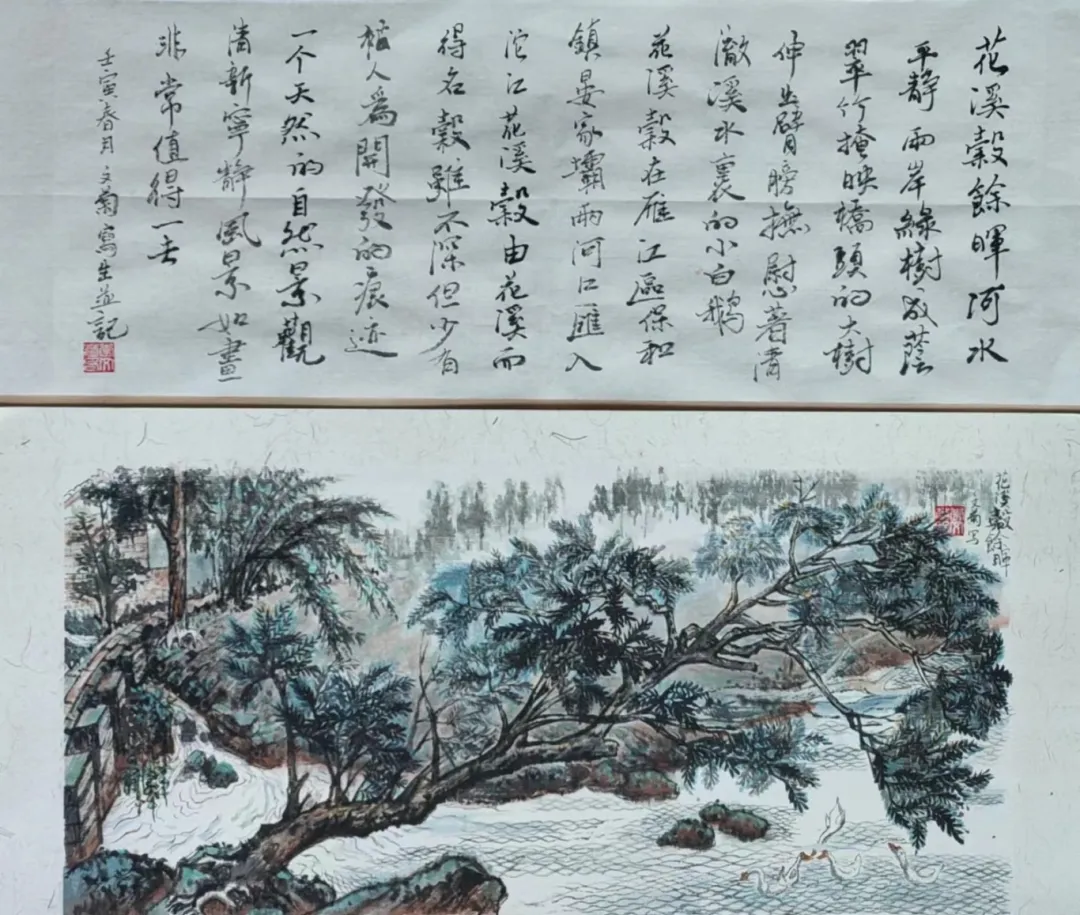 花溪穀餘暉河水
平靜兩岸綠樹成蔭
翠竹掩映橋頭的大樹
伸出臂膀撫慰著清
澈溪水裏的小白鵝
花溪穀在雁江區保和
鎮晏家壩兩河口匯入
沱江花溪穀由花溪而
得名穀雖不深但少有
被人爲開發的痕迹
一个天然的自然景觀
清新寧靜風景如畫
非常值得一去
壬寅春月文菊寫生並記
花溪穀餘暉
文菊写